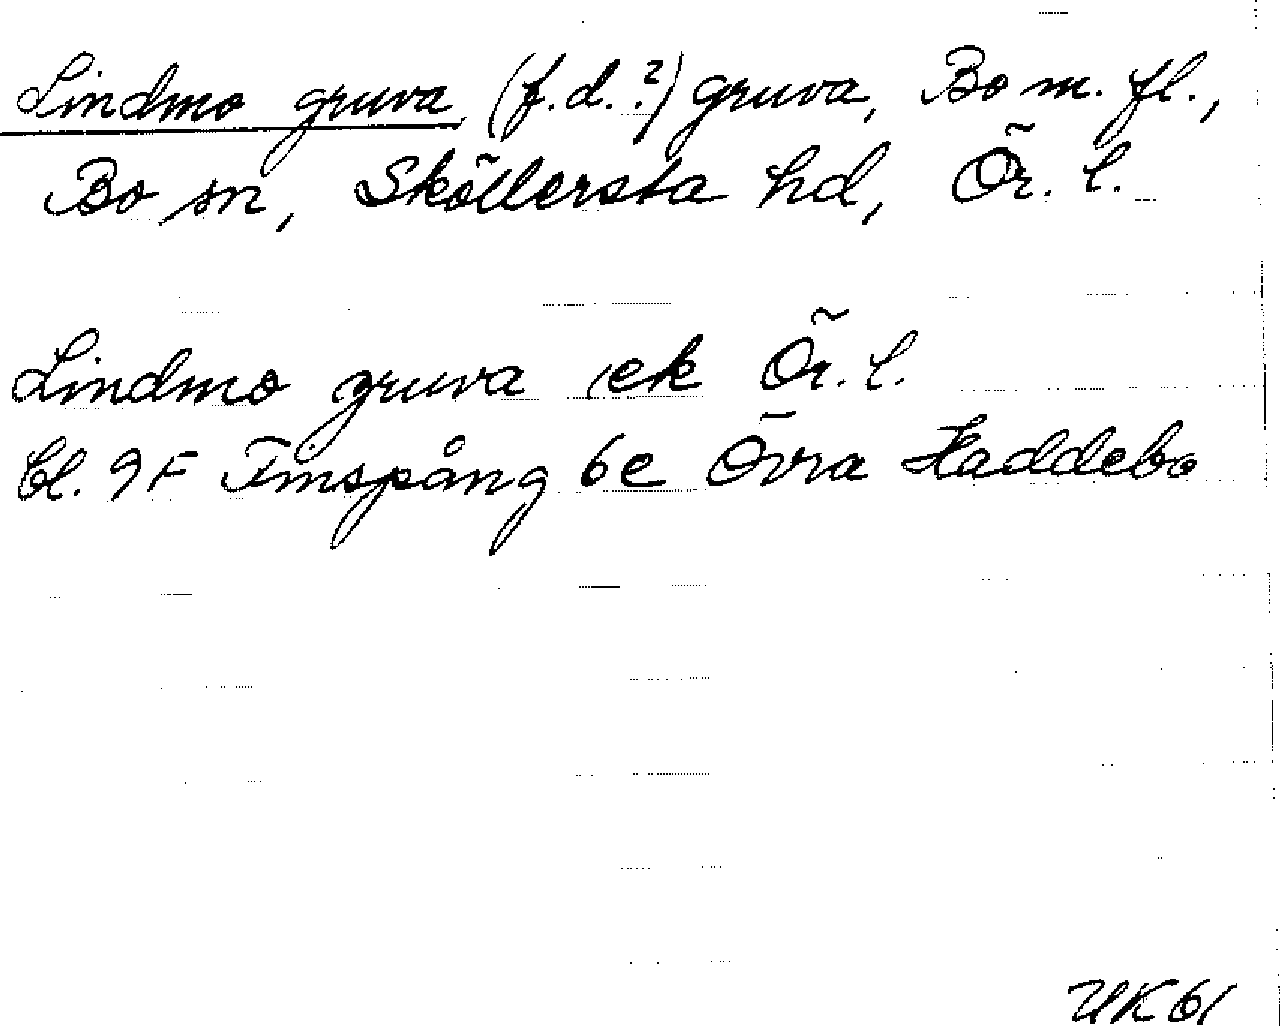 Lindmo gruva (f.d.?) gruva, Bo m. fl.,
Bo sn, Sköllersta hd, Ör. l.
Lindmo gruva ek Ör. l.
bl. 9F Finspång 6e Övra Haddebo
UK61